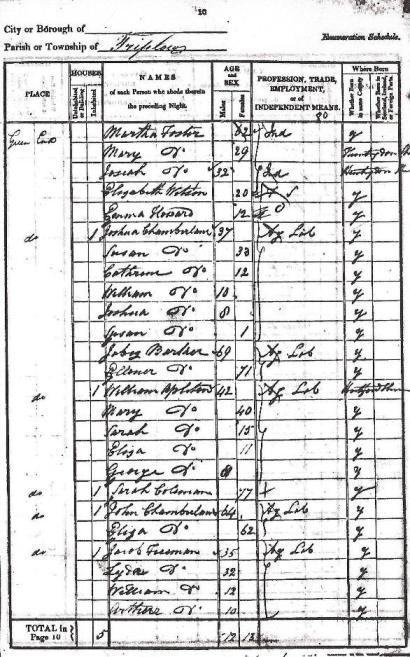 10
City or Borough of
Parish or Township of Triplow
Enumeration Schedule.
PLACE
HOUSES
Uninhabited or Building
Inhabited
NAMES
of each Person who abode therein the preceding Night.
AGE and SEX
Males
Females
PROFESSION, TRADE, EMPLOYMENT, or of INDEPENDENT MEANS.
Where Born
Whether Born in same County
Whether Born in Scotland, Ireland, or Foreign Parts.
Green Martha Foster 62 Ind y
Mary Do 29
Josiah Do 32 Ind
Elizabeth 20 S y
Emma Howard 12 y
do 1 Joshua Chamberlain 37 Ag Lab y
Susan Do 33 y
Do 12 y
William Do 10 y
Joshua Do 8 y
Susan Do 1 y
Barker 69 Ag Lab y
Do 71 y
do 1 William 42 Ag Lab
Mary Do 40 y
Sarah Do 15 y
Eliza Do 11 y
George Do 8 y
do 1 Sarah Coleman 77 y
do 1 John Chamberlain 64 Ag Lab y
Eliza Do 62 y
do 1 Jacob Freeman 35 Ag Lab y
Lydia Do 32 y
William Do 12 y
Do 10 y
TOTAL in Page 10 5 12 13